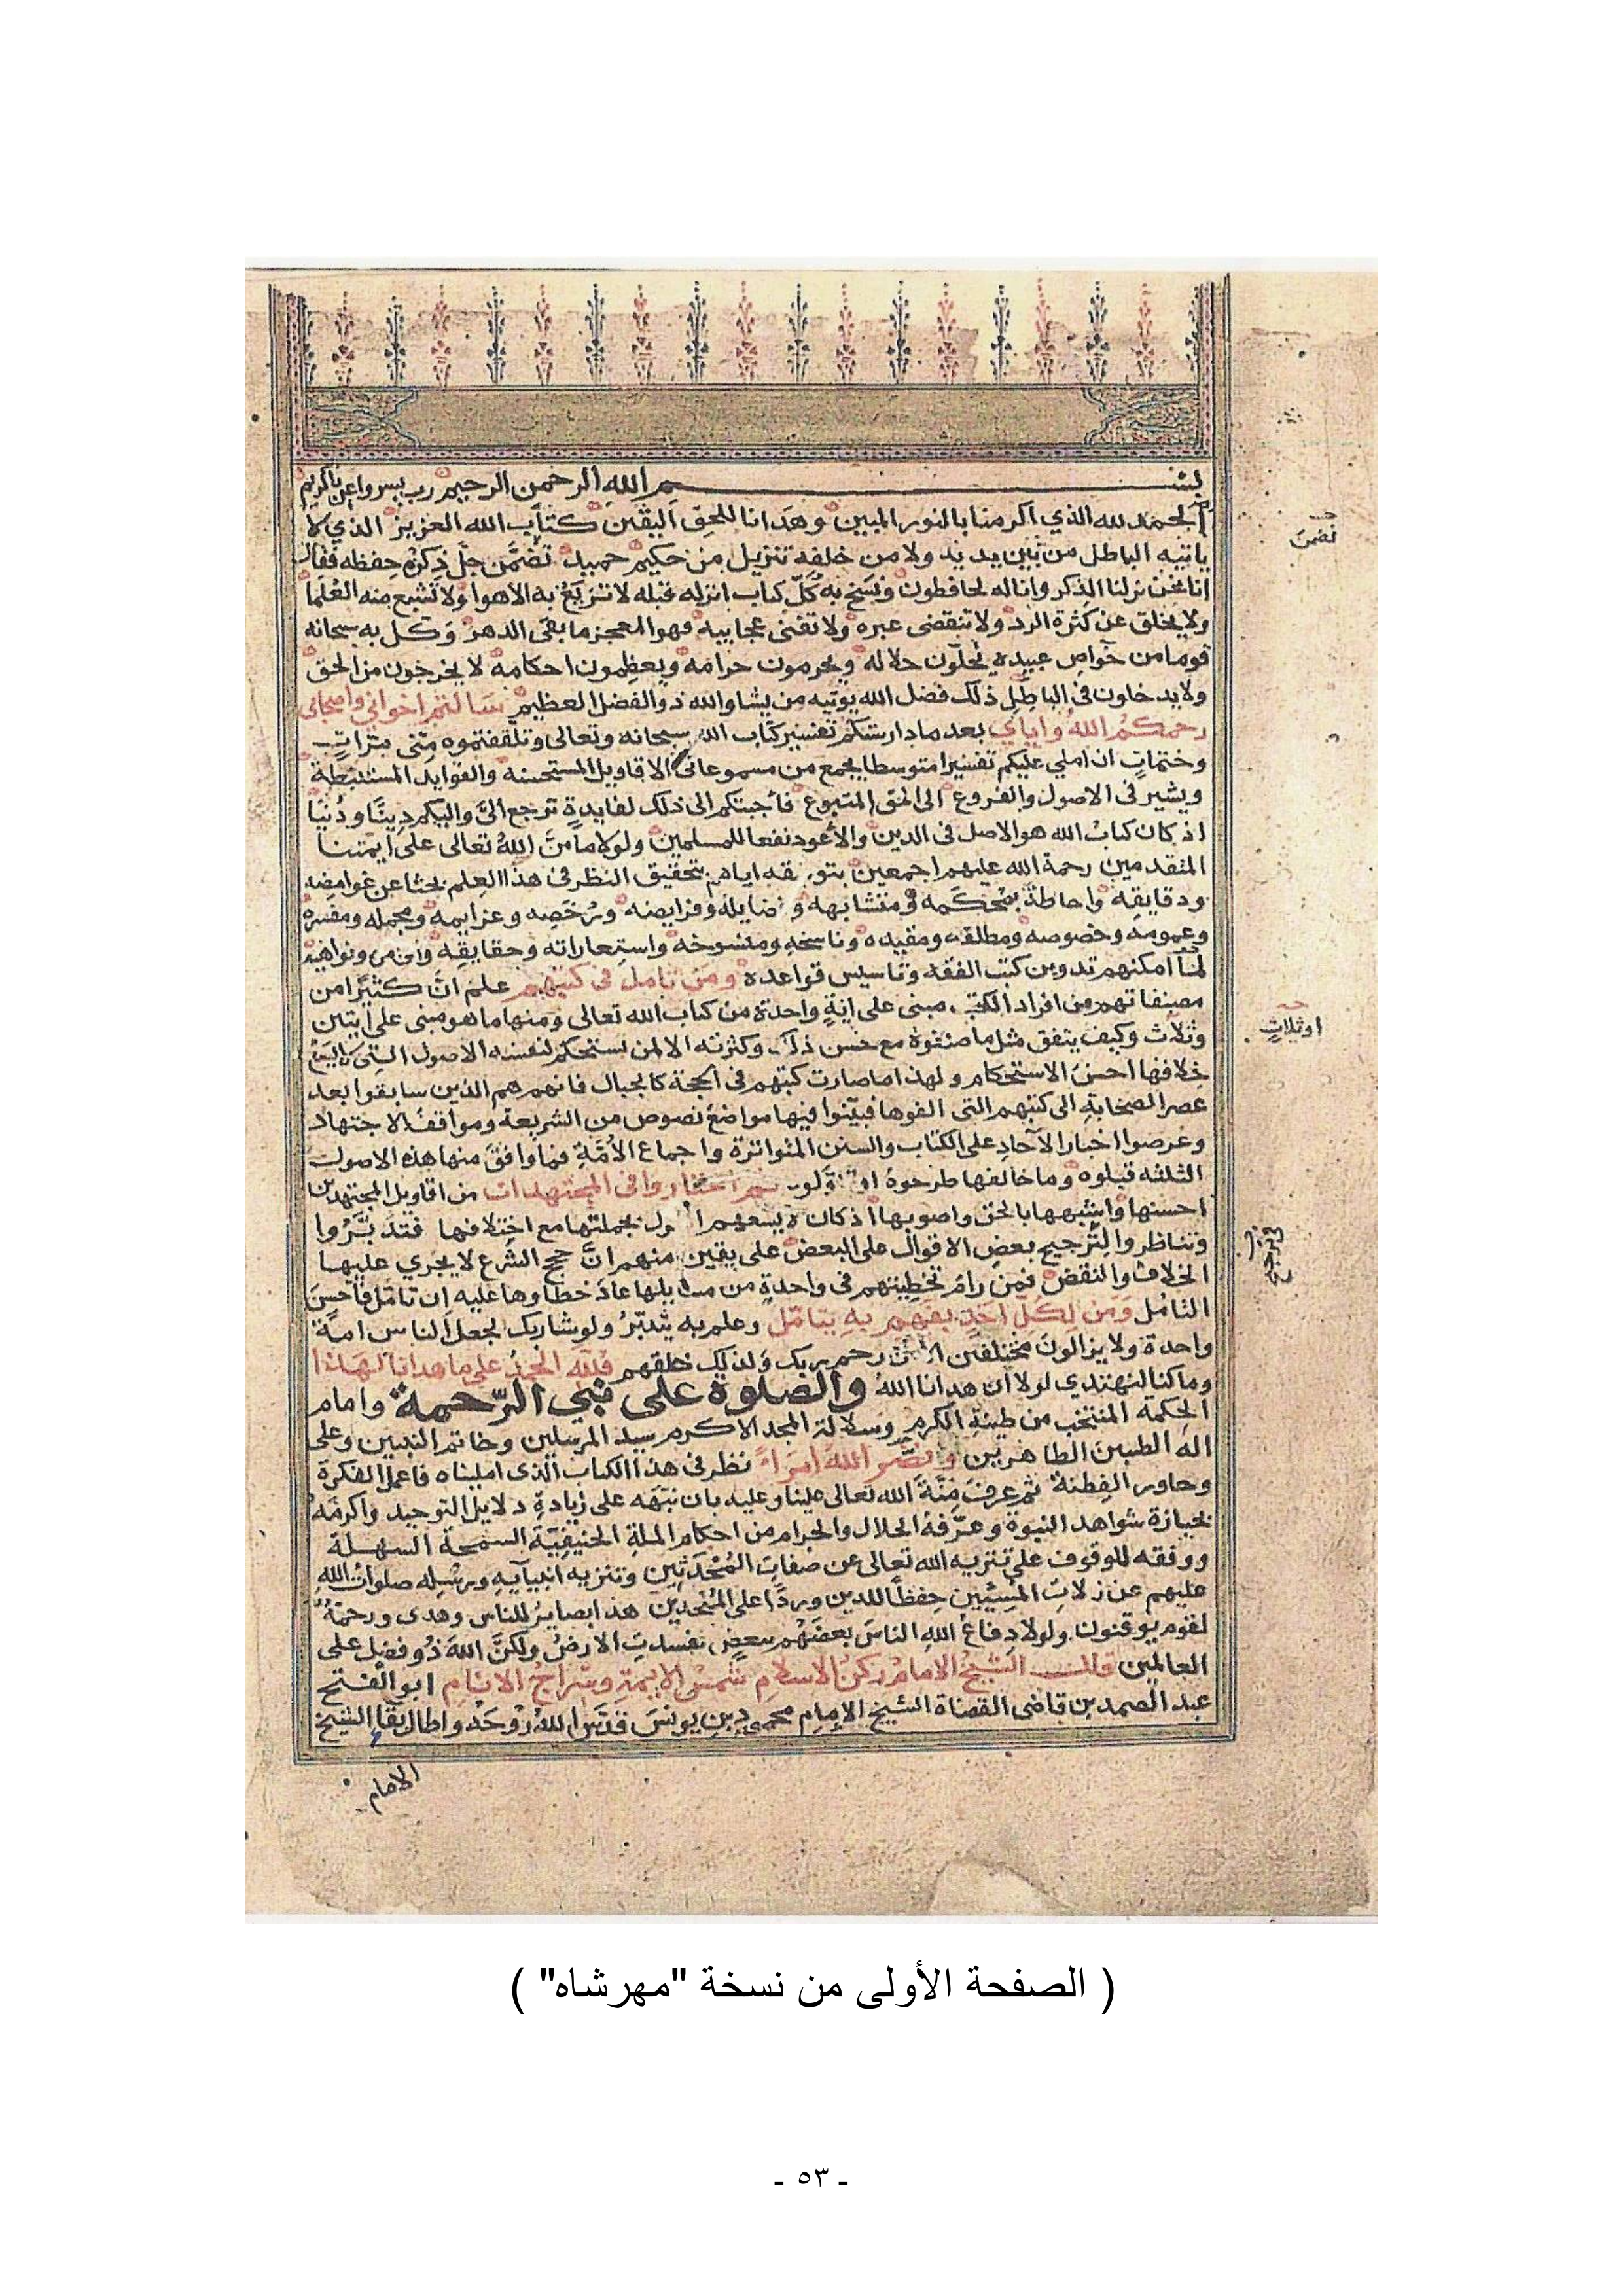 بسم الله الرحمن الرحيم رب يسر واعن يا كريم
الحمد لله الذي اكرمنا بالنور المبين وهدانا للحق اليقين كتاب الله العزيز الذي لا
ياتيه الباطل من بين يديه ولا من خلفه تنزيل من حكيم حميد تضمن جل ذكره حفظه فقال
انا نحن نزلنا الذكر وانا له لحافظون ونسخ به كل كتاب انزله قبله لا تزيغ به الاهوا ولا تشبع منه العلما
ولا يخلق عن كثرة الرد ولا تنقضى عبره ولا تفنى عجايبه فهو المعجز ما بقى الدهر وكل به سبحانه
قوما من خواص عبيده يحلون حلاله ويحرمون حرامه ويعظمون احكامه لا يخرجون من الحق
ولا يدخلون فى الباطل ذلك فضل الله يوتيه من يشا والله ذو الفضل العظيم سالتم اخواني واصحابى
رحمكم الله واياي بعد ما دارستكم تفسير كتاب الله سبحانه وتعالى وتلقفتموه منى مرات
وختمات ان املي عليكم تفسيرا متوسطا يجمع من مسموعاتى الاقاويل المستحسنه والفوايد المستنبطة
ويشير فى الاصول والفروع الى المتبوع فاجبتكم الى ذلك لفايدة ترجع الى واليكم دينا ودنيا
اذ كان كتاب الله هو الاصل فى الدين والاعود نفعا للمسلمين ولولا ما من الله تعالى على ايمتنا
المتقدمين رحمة الله عليهم اجمعين بتوفيقه اياهم بتحقيق النظر فى هذا العلم بحثا عن غوامضه
ودقايقه واحاطة بمحكمه ومتشابهه وفضايله وفرايضه ورخصه وعزايمه ومجمله ومفسره
وعمومه وخصوصه ومطلقه ومقيده وناسخه ومنسوخه واستعاراته وحقايقه واوامره ونواهيه
لما امكنهم تدوين كتب الفقه وتاسيس قواعده ومن تامل فى كتبهم علم ان كثيرا من
مصنفاتهم من افراد الكتب مبنى على اية واحدة من كتاب الله تعالى ومنها ما هو مبنى على ايتين
وثلاث وكيف يتفق مثل ما صنفوه مع حسن ذلك وكثرته الا لمن استحكم لنفسه الاصول التى
خلافها احسن الاستحكام ولهذا ما صارت كتبهم فى الحجة كالجبال فانهم هم الذين سابقوا بعد
عصر الصحابة الى كتبهم التى الفوها فبينوا فيها مواضع نصوص من الشريعة ومواقف الاجتهاد
وعرضوا اخبار الآحاد على الكتاب والسنن المتواترة واجماع الامة فما وافق منها هذه الاصول
الثلثه قبلوه وما خالفها طرحوه ثم اختاروا فى المجتهدات من اقاويل المجتهدين
احسنها واشبهها بالحق واصوبها اذ كان لا يسعهم بجملتها مع اختلافها فتدبروا
وتناظروا لترجيح بعض الاقوال على البعض على يقين منهم ان حجج الشرع لا يجري عليها
الخلاف والنقض فمن رام تخطيتهم فى واحدة من مسايلها عاد خطاوها عليه ان تامل فاحسن
التامل ومن لكل احد بفهم به يتامل وعلم به يتدبر ولو شا ربك لجعل الناس امة
واحدة ولا يزالون مختلفين الا من رحم ربك ولذلك خلقهم فلله الحمد على ما هدانا لهذا
وما كنا لنهتدي لولا ان هدانا الله والصلوة على نبي الرحمة وامام
الحكمة المنتخب من طينة الكرم وسلالة المجد الاكرم سيد المرسلين وخاتم النبيين وعلى
اله الطيبين الطاهرين ونضر الله امراء نظر فى هذا الكتاب الذى امليناه فاعمل الفكرة
وحاور الفطنة ثم عرف منة الله تعالى علينا وعليه بان نبهه على زيادة دلايل التوحيد واكرمه
بحيازة شواهد النبوة وعرفه الحلال والحرام من احكام الملة الحنيفية السمحة السهلة
ووفقه للوقوف على تنزيه الله تعالى عن صفات المحدثين وتنزيه انبيآيه ورسله صلوات الله
عليهم عن زلات المسيئين حفظا للدين وردا على الملحدين هذا بصاير للناس وهدى ورحمة
لقوم يوقنون ولولا دفاع الله الناس بعضهم ببعض لفسدت الارض ولكن الله ذو فضل على
العالمين قال الشيخ الامام ركن الاسلام شمس الايمة وسراج الانام ابو الفتح
عبد الصمد بن قاضى القضاة الشيخ الامام محمود بن يونس قدس الله روحه واطال بقا الشيخ
الامام
نضمن
او ثلاث
( الصفحة الأولى من نسخة "مهرشاه" )
- ٥٣ -